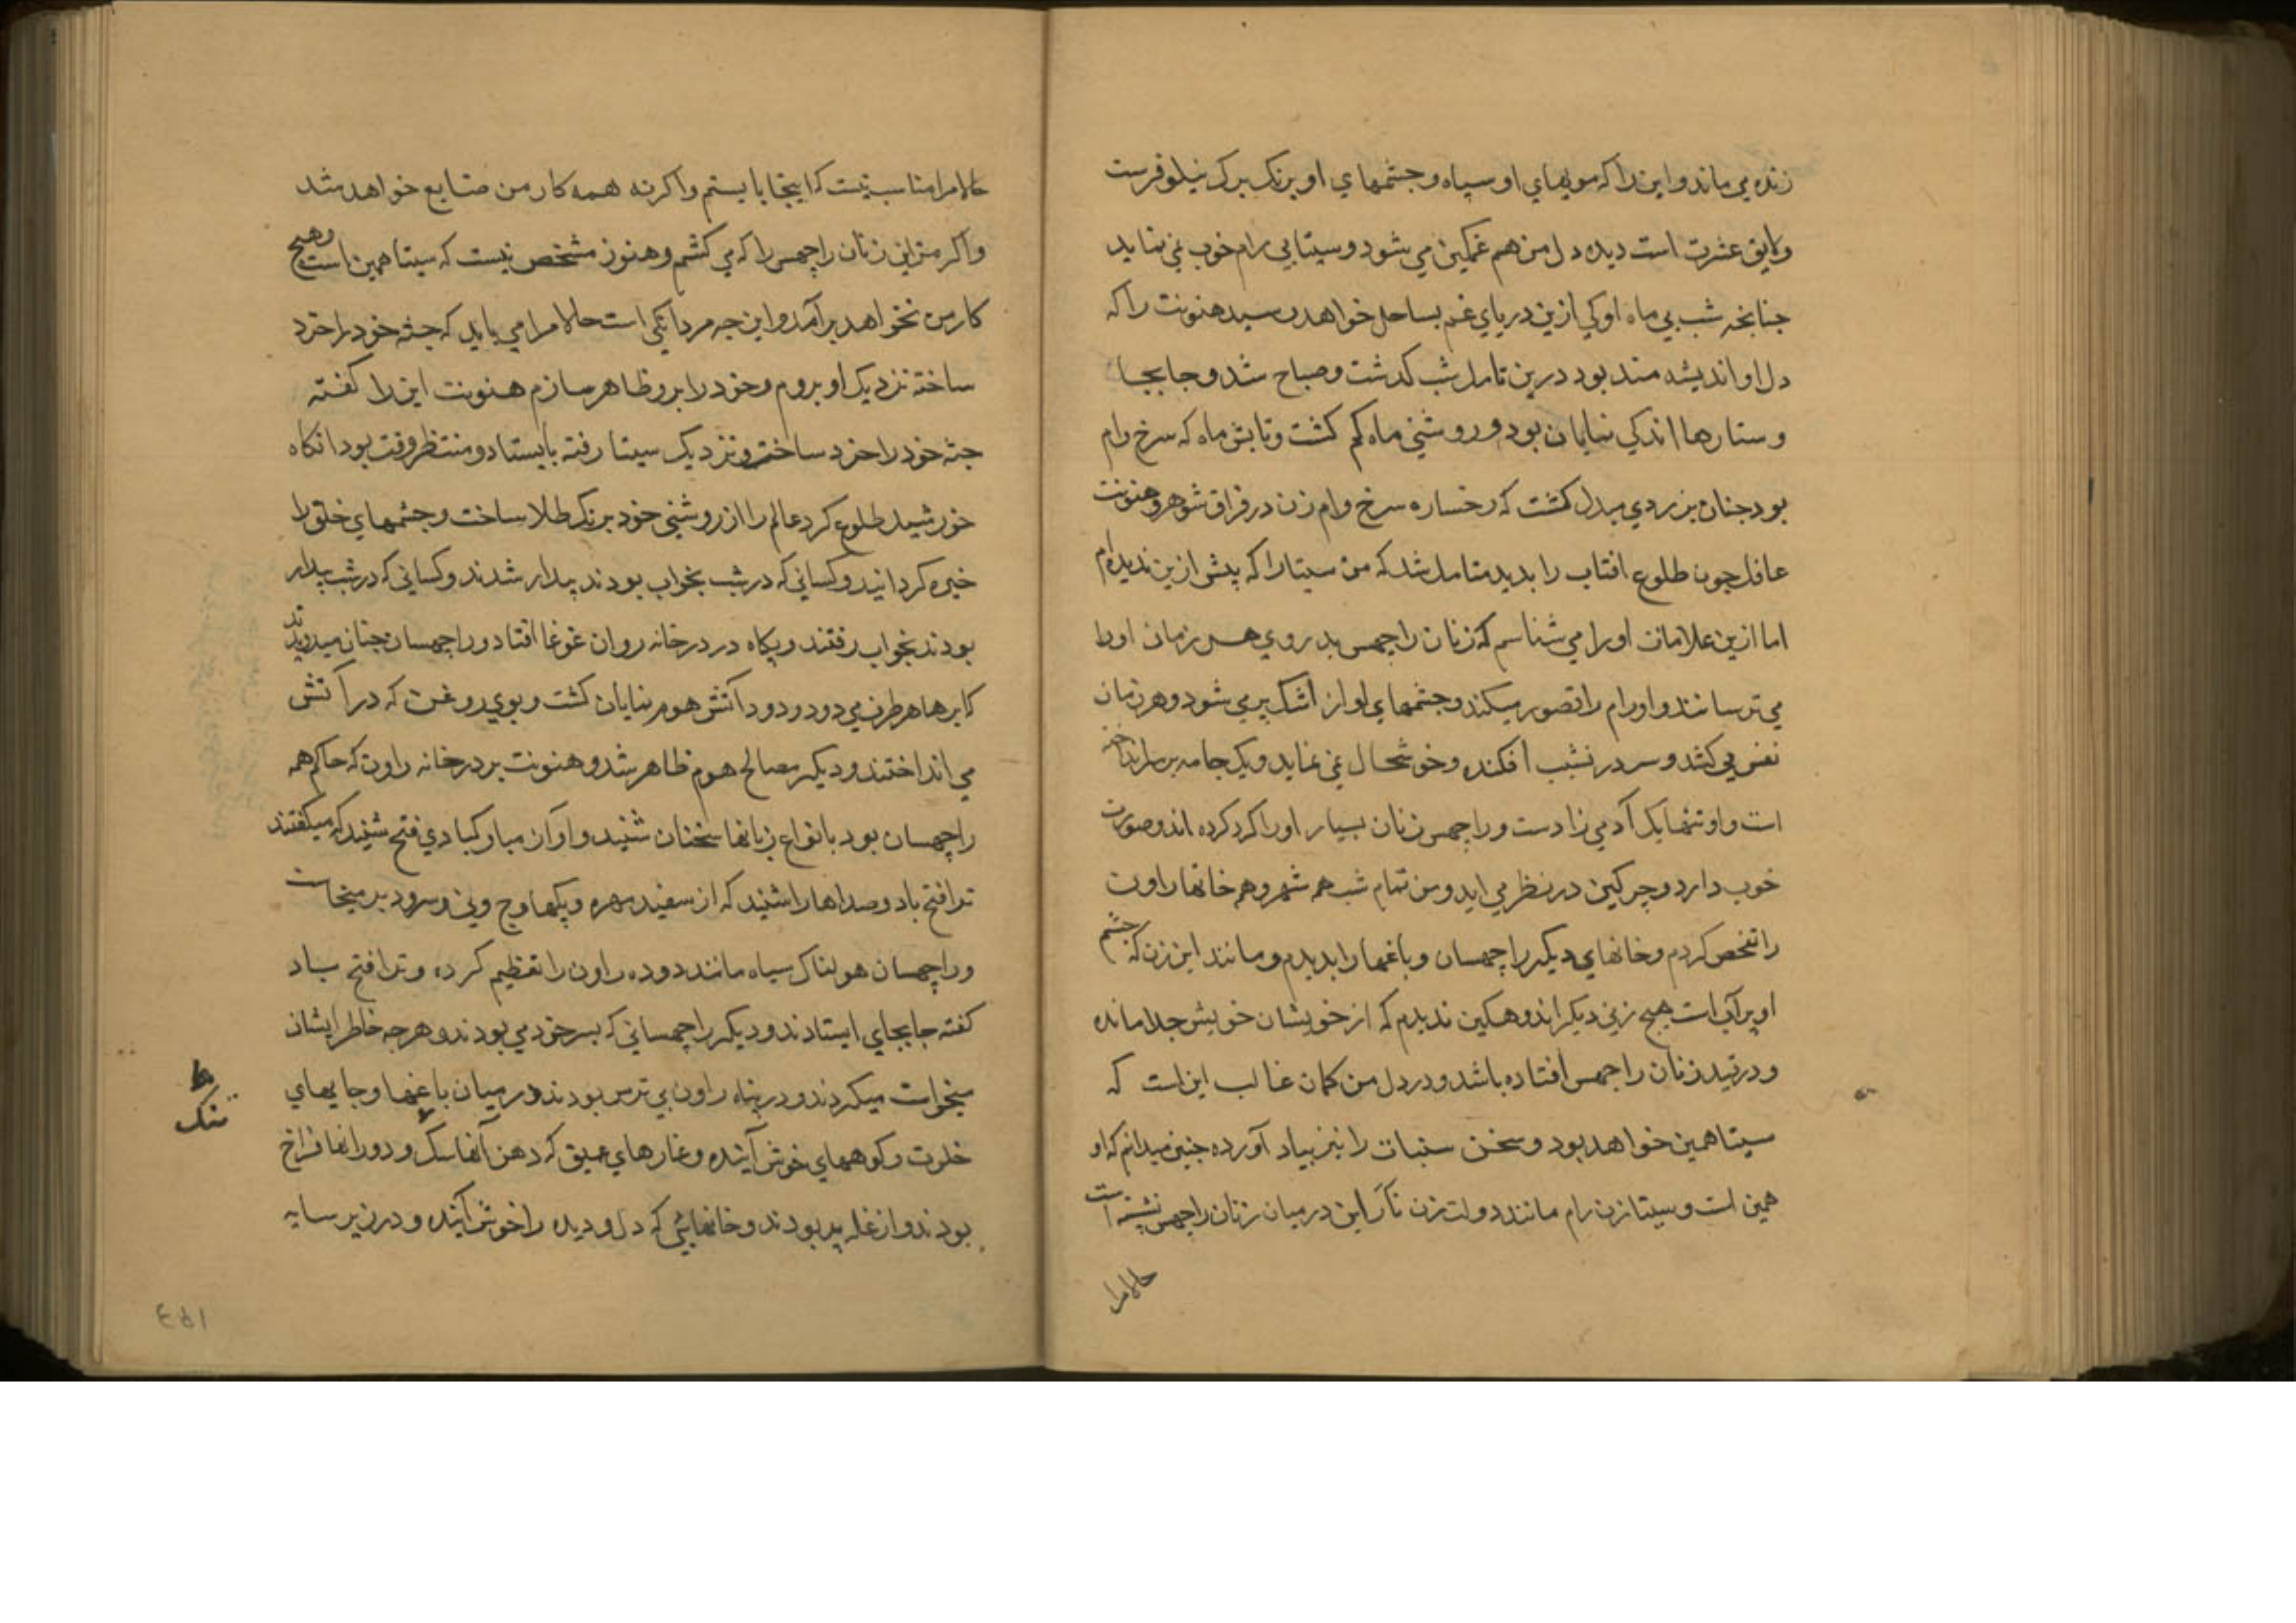 زنده می ماند و این را که مویهاي او سیاه و جشمهاي او برنک برک نیلوفرست
و لایق عشرت است دیده دل من هم غمکین می شود و سیتا بی رام خوب نمي نماید
جنانجه شب بي ماه او کي ازین دریاي غم بساحل خواهد رسید هنونت را که
دل او اندیشه مند بود درین تامل شب کدشت و صباح شد و جابجا
و ستارها اندکي نمایان بود و روشني ماه کم کشت و تابش ماه که سرخ وام
بود جنان بزردي مبدل کشت که رخساره سرخ وام زن در فراق شوهر و هنونت
عاقل جون طلوع افتاب را بدید متامل شد که من سیتا را که پیش ازین ندیده ام
اما ازین علامات او را مي شناسم که زنان راجهس بد روي هر زمان او را
مي ترسانند و او رام را تصور میکند و جشمهاي او از اشک پر مي شود و هر زمان
نفس می کشد و سر در نشیب افکنده و خوشحال نمي نماید و یک جامه بر سر انداخته
است و او تنها یک آدمي زادست و راجهس زنان بسیار او را کرد کرده اند و صورت
خوب دارد و چرکین در نظر مي اید و من تمام شب همه شهر و همه خانها راون
را تفحص کردم و خانهاي دیکر راچهسان و باغها را بدیدم و مانند این زن که جشم
او پر آب است هیچ زني دیکر اندوهکین ندیدم که از خویشان خویش جدا مانده
و در قید زنان راجهس افتاده باشد و در دل من کمان غالب این است که
سیتا همین خواهد بود و سخن سنپات را نیز بیاد آورده جنین میدانم که او
همین است و سیتا زن رام مانند دولت زن ناراین در میان زنان راجهس نشسته است
حالا مرا
حالا مرا مناسب نیست که اینجا بایستم و اکر نه همه کار من ضایع خواهد شد
و اکر من این زنان راچهس را که مي کشم و هنوز مشخص نیست که سیتا همین است و هیچ
کار من نخواهد برآمد و این جه مردانکي است حالا مرا مي باید که جثه خود را خرد
ساخته نزدیک او بروم و خود را برو ظاهر سازم هنونت این را کفته
جثه خود را خرد ساخته و نزدیک سیتا رفته بایستاد و منتظر وقت بود انکاه
خورشید طلوع کرد عالم را از روشني خود برنک طلا ساخت و جشمهاي خلق را
خیره کردانید و کساني که در شب بخواب بودند بیدار شدند و کساني که در شب بیدار
بودند بخواب رفتند و پکاه در درخانه روان غوغا افتاد و راجهسان جنان میدویدند
که ابرها هر طرف مي دود و دود آتش هوم نمایان کشت و بوي روغن که در آتش
مي انداختند و دیکر مصالح هوم ظاهر شد و هنونت بر درخانه راون که حاکم همه
راچهسان بود بانواع زبانها سخنان شنید و آواز مبارکبادي فتح شنید که میکفتند
ترا فتح باد و صداها را شنید که از سفیدمهره و پکهاوج و ني و سرود برمیخاست
و راچهسان هولناک سیاه مانند دوده راون را تعظیم کرده و ترا فتح باد
کفته جابجاي ایستادند و دیکر راچهساني که بسر خود مي بودند و هر جه خاطر ایشان
میخواست میکردند و در پناه راون بي ترس بودند و در میان باغها و جایهاي
خلوت و کوههاي خوش آینده و غارهاي عمیق که دهن آنها سک و دورانها فراخ
بودند و از غله پر بودند و خانهائي که دل و دیده را خوش آیند و در زیر سایه
تنک